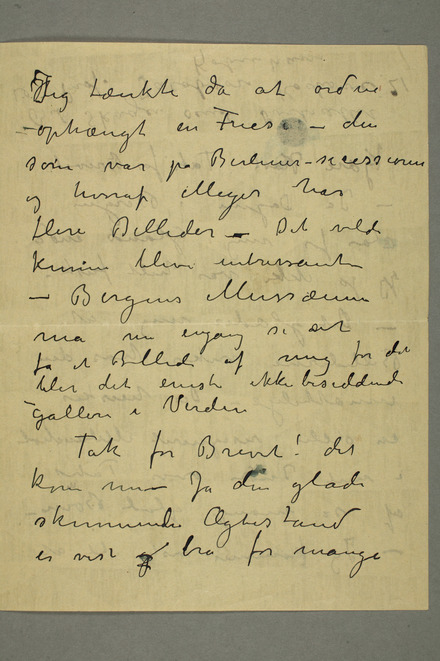 Jeg tænkte da at ordne
– ophængt en Frise – den
som var på Berliner-secessionen
og hvoraf Meyer har
flere Billeder – Det vilde
kunne blive interessant
– Bergens Mussæum
må nu engang se at
få et Billede af mig for det
blir det eneste ikke besiddende
Galleri i Verden
Tak for Brevet! det
kom nu – Ja den glade
skinnende Ægtestand
er vist og bra for mange